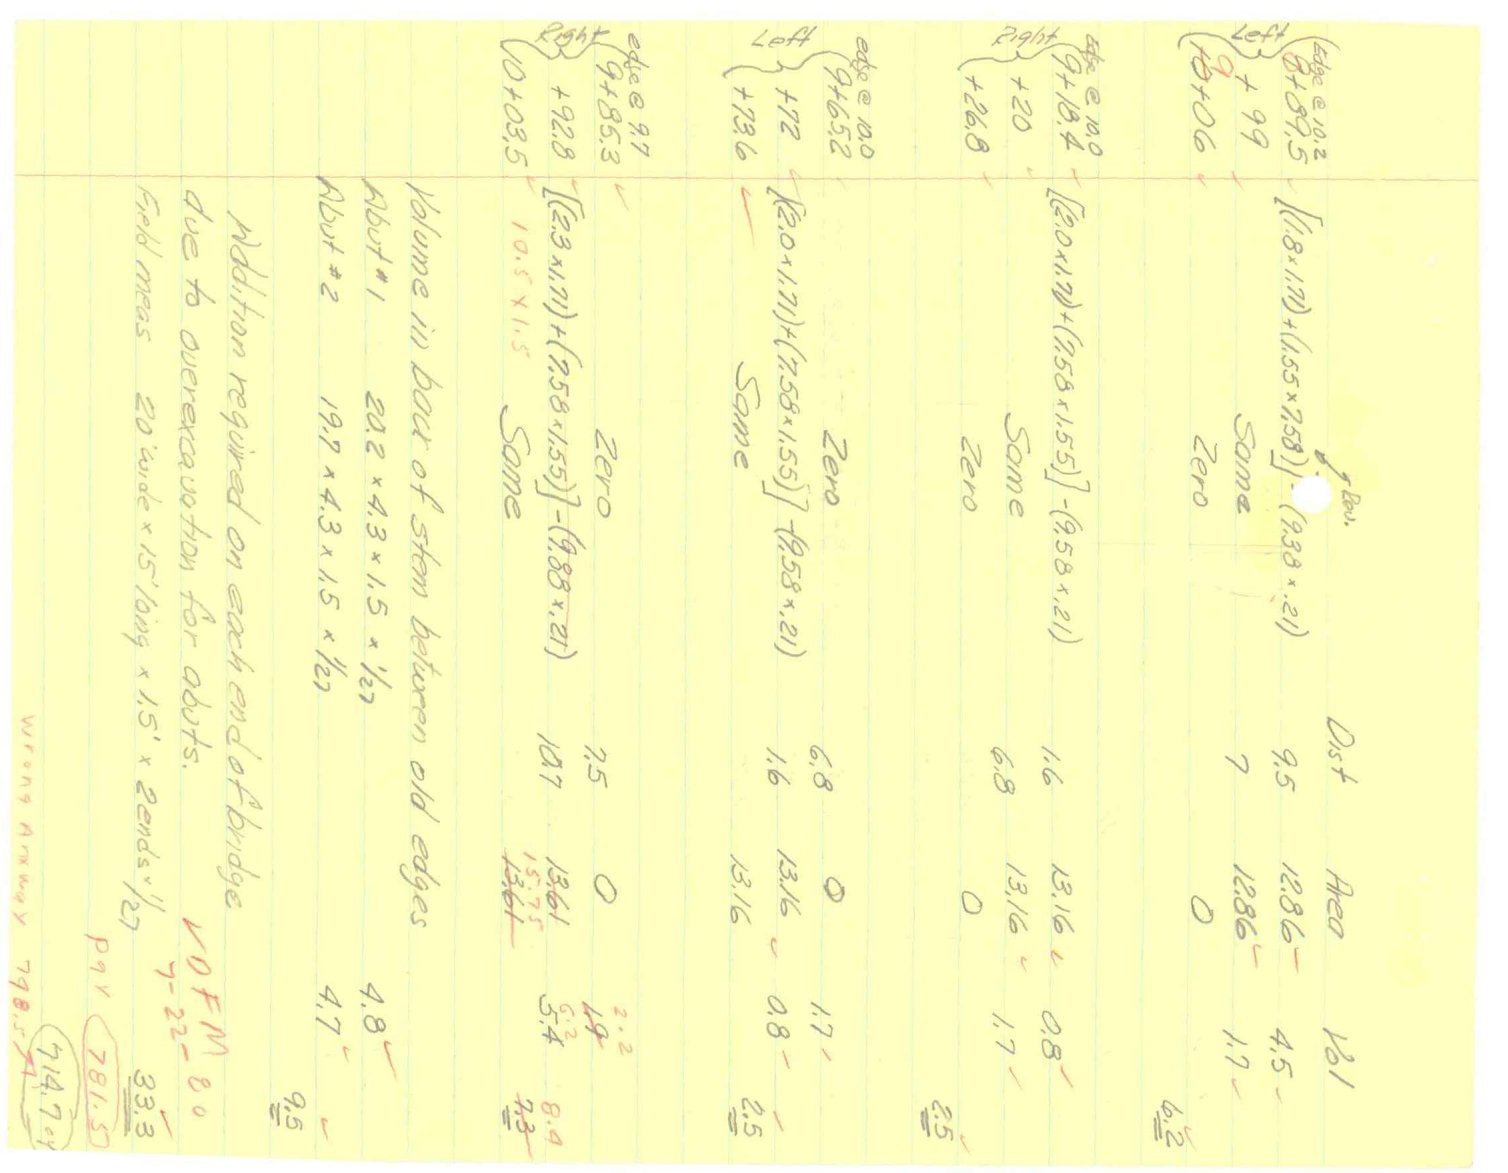 Dist Area Vol
Edge @ 10.2
Left
8+89.5 [(1.8 x 1.71)+(1.55 x 7.58)] - (9.38 x .21) 9.5 12.86 4.5
+ 99 Same 7 12.86 1.7
9
10+06 Zero 0 6.2
Edge @ 10.0
Right
9+18.4 [(2.0 x 1.71)+(7.58 x 1.55)] - (9.58 x .21) 1.6 13.16 0.8
+20 Same 6.8 13.16 1.7
+26.8 Zero 0 2.5
edge @ 10.0
Left
9+65.2 Zero 6.8 0 1.7
+72 [(2.0 x 1.71)+(7.58 x 1.55)] - (9.58 x .21) 1.6 13.16 0.8
+73.6 Same 13.16 2.5
edge @ 9.7
Right
9+85.3 Zero 7.5 0 1.9 2.2
+92.8 [(2.3 x 1.71)+(7.58 x 1.55)] - (9.88 x .21) 10.7 13.61 5.4 6.2 8.4
10+03.5 10.5 x 1.5 Same 15.75 13.61 7.3
Volume in back of stem between old edges
Abut #1 20.2 x 4.3 x 1.5 x 1/27 4.8
Abut #2 19.7 x 4.3 x 1.5 x 1/27 4.7
9.5
Addition required on each end of bridge
due to overexcavation for abuts.
Field meas 20' wide x 15' long x 1.5' x 2 ends x 1/27 33.3
VDFM
7-22-80
pay 781.5
714.7 cy
wrong Arxway 798.5